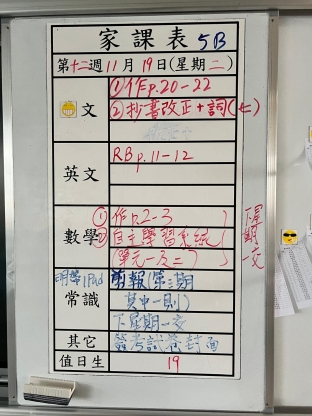 家課表 5B
第十二週 11月 19日(星期 二)
①作p.20-22
文 ②抄書改正+詞(七)
RB p.11-12
英文
① 作p.2-3
數學 ② 自主學習系統
(單元一及二)
下星期一交
明帶iPad 剪報(第三期
常識 其中一則)
下星期一交
其它 簽考試卷封面
值日生 19